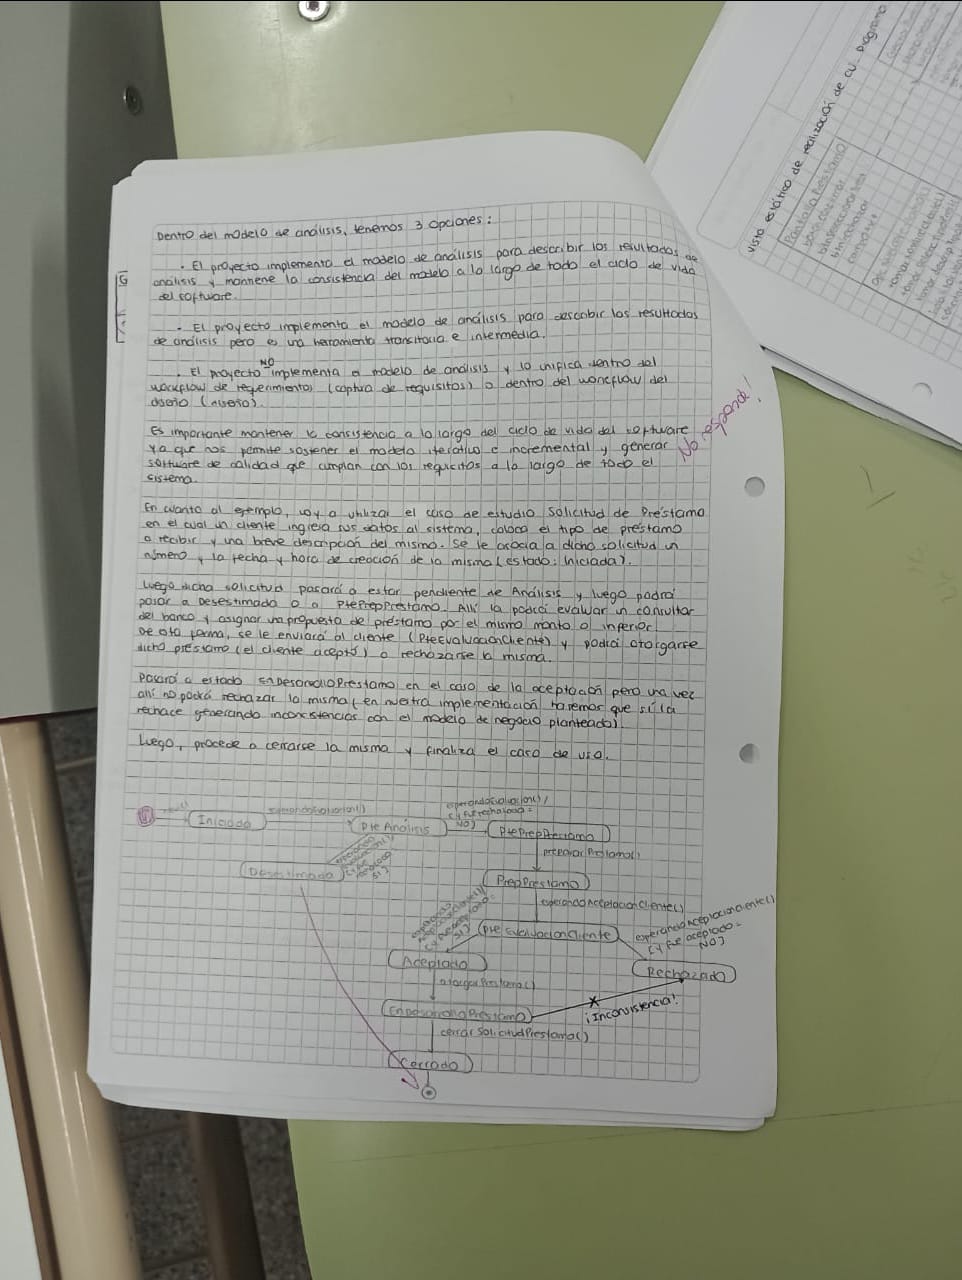 Dentro del modelo de análisis, tenemos 3 opciones:
. El proyecto implementa el modelo de análisis para describir los resultados de
análisis y mantiene la consistencia del modelo a lo largo de todo el ciclo de vida
del software.
. El proyecto implementa el modelo de análisis para describir los resultados
de análisis pero es una herramienta transitoria e intermedia.
NO
. El proyecto implementa el modelo de análisis y lo unifica dentro del
workflow de requerimientos (captura de requisitos) o dentro del workflow del
diseño (diseño).
Es importante mantener la consistencia a lo largo del ciclo de vida del software
ya que nos permite sostener el modelo iterativo e incremental y generar
software de calidad que cumplan con los requisitos a lo largo de todo el
sistema.
No responde!
En cuanto al ejemplo, voy a utilizar el caso de estudio Solicitud de Préstamo
en el cual un cliente ingresa sus datos al sistema, coloca el tipo de préstamo
a recibir y una breve descripción del mismo. Se le asocia a dicha solicitud un
número y la fecha y hora de creación de la misma (estado: Iniciada).
Luego dicha solicitud pasará a estar pendiente de Análisis y luego podrá
pasar a Desestimada o a PtePrepPrestamo. Allí la podrá evaluar un consultor
del banco y asignar una propuesta de préstamo por el mismo monto o inferior.
De ota forma, se le enviará al cliente (PteEvaluacionCliente) y podrá otorgarse
dicho préstamo (el cliente aceptó) o rechazarse la misma.
Pasará a estado EnDesarrolloPrestamo en el caso de la aceptación pero una vez
ahí no podrá rechazar la misma (en nuestra implementación haremos que sí la
rechace generando inconsistencias con el modelo de negocio planteado).
Luego, procede a cerrarse la misma y finaliza el caso de uso.
Iniciada
esperandoEvaluacion()
Pte Análisis
esperandoEvaluacion()/
[y fue rechazada =
NO]
PtePrepPrestamo
Desestimada
prepararPrestamo()
PrepPrestamo
esperandoAceptacionCliente()
Pte EvaluacionCliente
esperandoAceptacionCliente()
[y fue aceptado =
NO]
esperando
AceptacionCliente()
[y fue aceptado =
SI]
Aceptado
Rechazado
otorgarPrestamo()
EnDesarrolloPrestamo
¡Inconsistencia!
cerrarSolicitudPrestamo()
Cerrado
Vista estática de realización de CU. Diagrama
Pantalla Préstamo